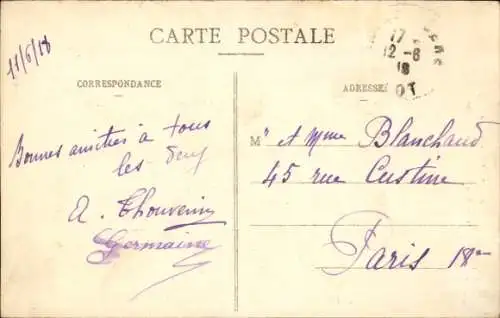 CARTE POSTALE
11/6/18
17
12-6
18
CORRESPONDANCE
ADRESSE
Bonnes amitiés à tous
les deux
A. Thouvenin
Germaine
M" et Mme Blanchaud
45 rue Custine
Paris 18e